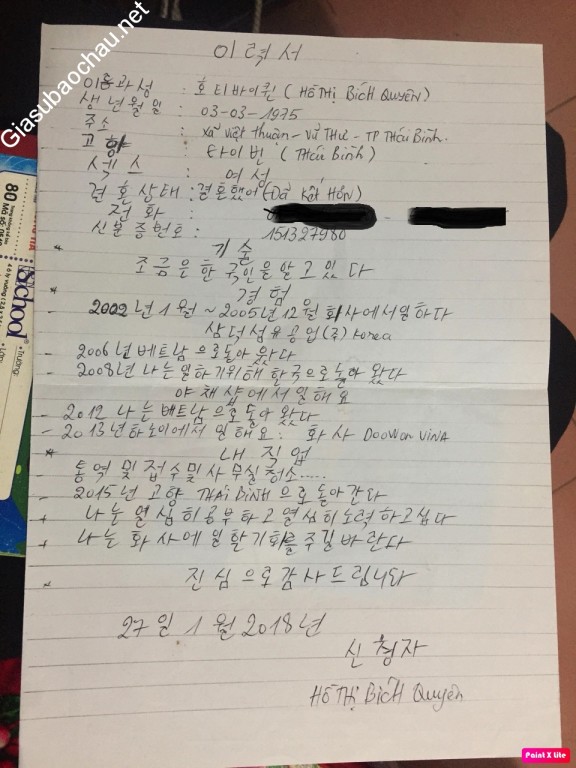 Giasubaochau.net
이 력 서
이름과 성 : 호 티 바이 퀸 ( HỒ THỊ BÍCH QUYÊN)
생 년 월 일 : 03-03-1975
주소 : Xã Việt Thuận - Vũ Thư - TP Thái Bình.
고향 : 타이빈 ( Thái Bình )
섹 스 : 여성
결 혼 상태 : 결혼했어 (Đã Kết Hôn)
전 화 :
신분 증 번호 : 151327980
* 기 술
조금 은 한 국인 을 알 고 있 다
* 경 험
- 2002년 1월 ~ 2005년 12월 회사에서일하다
삼덕섬유공업(주) Korea
- 2006년 베트남 으로돌아 왔다
- 2008년 나는 일하기위해 한국으로돌아 왔다
야 채 샵에서 일해요
- 2012 나는 베트남 으로돌아 왔다
- 2013년하노이에서 일해요 : 화사 DOOWON VINA
* 내 직 업
통역 및 접수및사무실청소.....
- 2015년 고향 THÁI BÌNH 으로 돌아간다
+ 나는 열심히공부하고열심히노력하고싶다
+ 나는 화사에일할기회를 주길 바란다
* 진 심 으로 감사 드 립니다
27일 1월 2018년
신 청자
HỒ THỊ BÍCH QUYÊN
80
School
Trường:
Lớp:
Paint X Lite